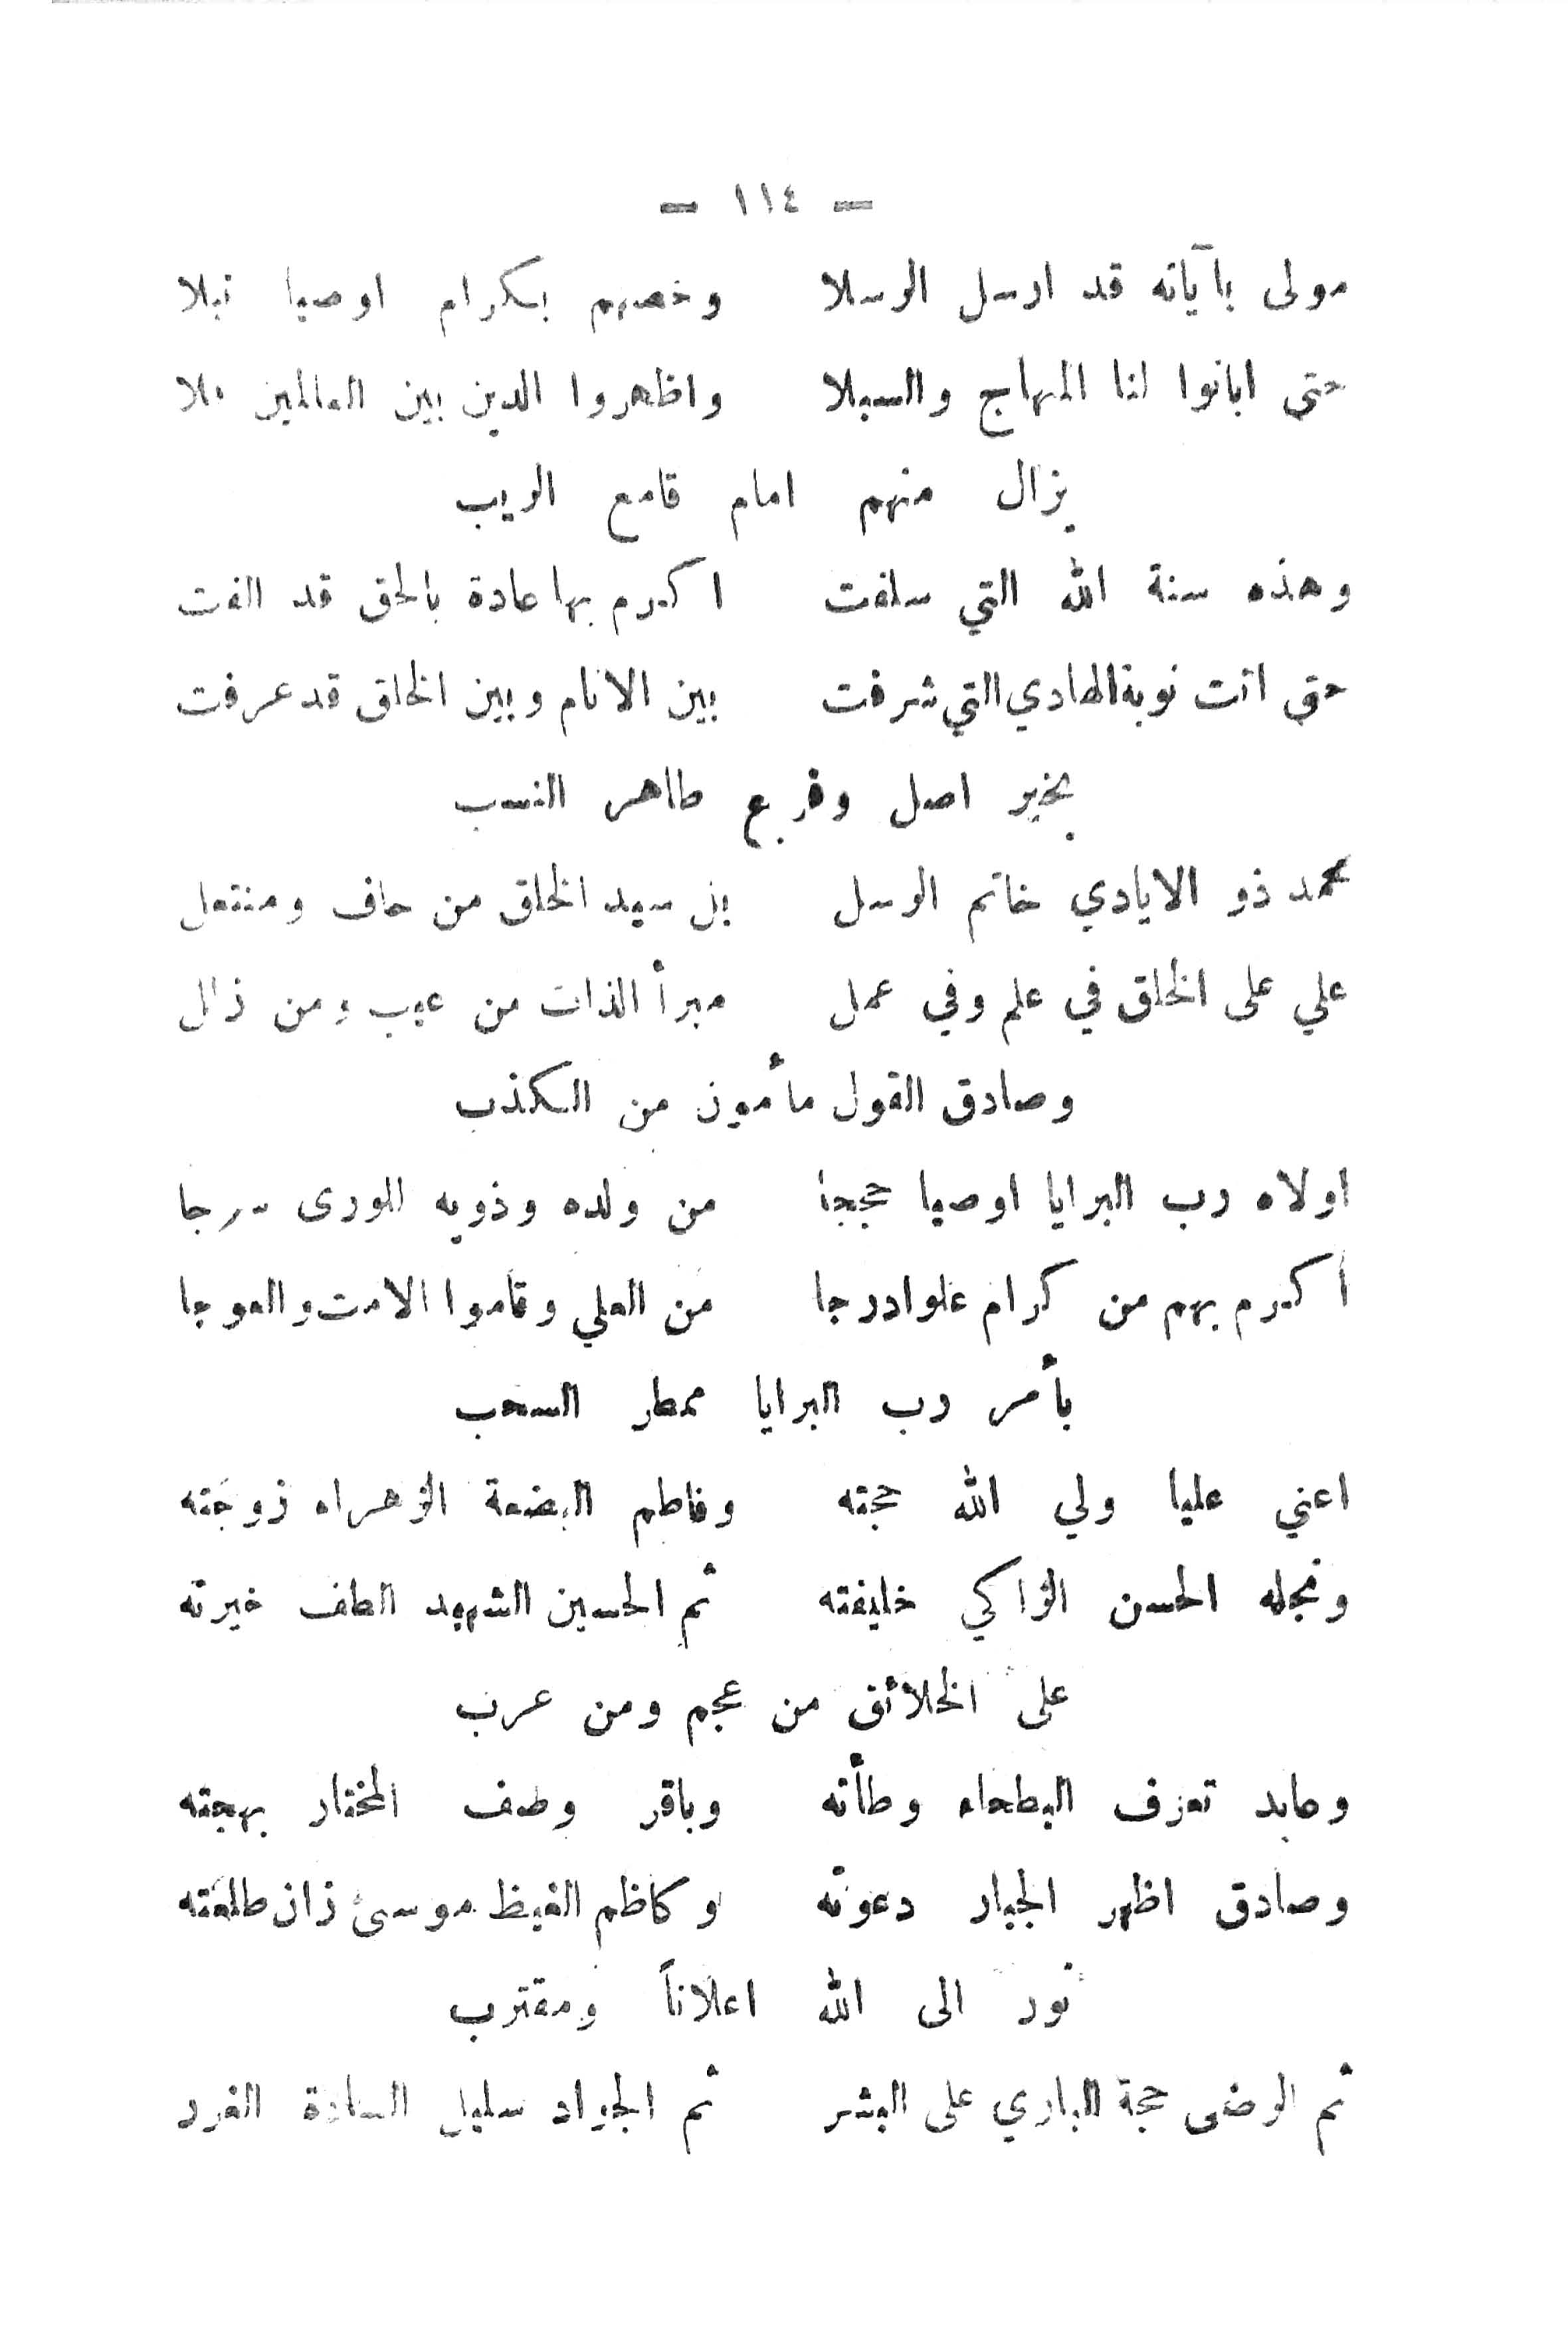 — ١١٤ —
مولى بآياته قد ارسل الرسلا وخصهم بكرام اوصيا نبلا
حتى ابانوا لنا المنهاج والسبلا واظهروا الدين بين العالمين فلا
يزال منهم امام قامع الريب
وهذه سنة الله التي سلفت اكرم بها عادة بالحق قد الفت
حتى اتت نوبة الهادي التي شرفت بين الانام وبين الخلق قد عرفت
بخير اصل وفرع طاهر النسب
محمد ذو الايادي خاتم الرسل بل سيد الخلق من حاف ومنتعل
علي على الخلق في علم وفي عمل مبرأ الذات من عيب ومن زلل
وصادق القول مأمون من الكذب
اولاه رب البرايا اوصيا حججا من ولده وذويه للورى سرجا
أكرم بهم من كرام علوا درجا من العلي وقاموا الامت والعوجا
بأمر رب البرايا ممطر السحب
اعني عليا ولي الله حجته وفاطم البضعة الزهراء زوجته
ونجله الحسن الزاكي خليفته ثم الحسين الشهيد الطف خيرته
على الخلائق من عجم ومن عرب
وعابد تعرف البطحاء وطأته وباقر وصف المختار بهجته
وصادق اظهر الجبار دعوته وكاظم الغيظ موسى زان طلعته
نور الى الله اعلاناً ومقترب
ثم الرضى حجة الباري على البشر ثم الجواد سليل السادة الغرر